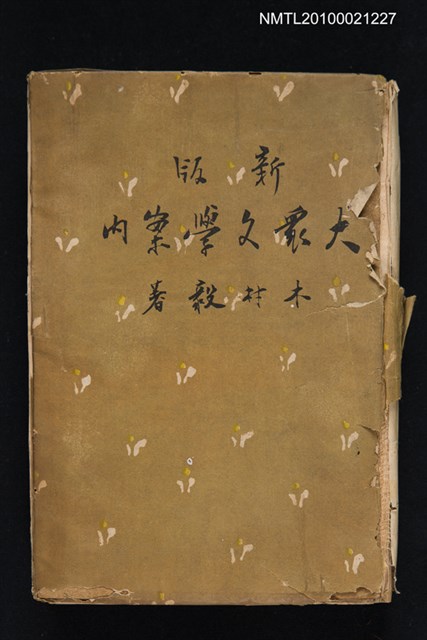 NMTL20100021227
新版
大衆文學案内
木村毅著